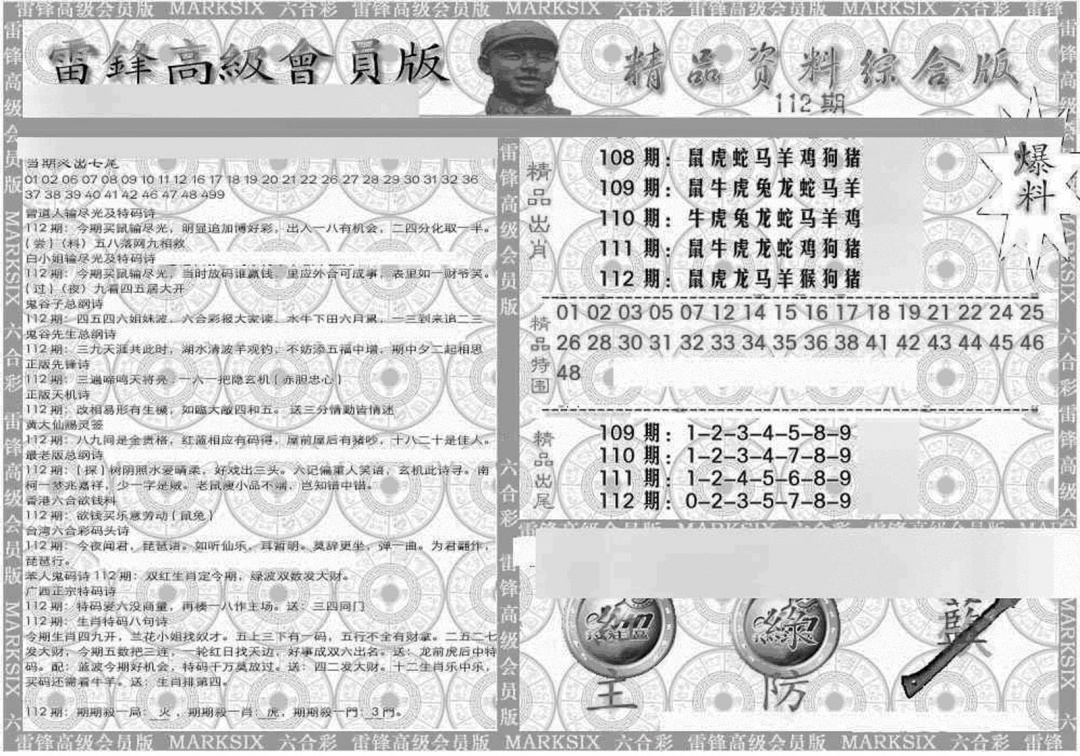 雷锋高级会员版 MARKSIX 六合彩 雷锋高级会员版 MARKSIX 六合彩 雷锋高级会员版 MARKSIX 六合彩 雷锋
雷鋒高級會員版
精品資料綜合版
112期
爆料
01 02 06 07 08 09 10 11 12 16 17 18 19 20 21 22 26 27 28 29 30 31 32 36
37 38 39 40 41 42 46 47 48 499
曾道人输尽光及特码诗
112期：今期买鼠输尽光，明显追加博好彩，出入一八有机会，二四分化取一半。
(尝)(料)五八落网九相救
白小姐输尽光及特码诗
112期：今期买鼠输尽光，当时放码谁赢钱，里应外合可成事，表里如一财爷笑。
(过)(夜)九看四五居大开
鬼谷子总纲诗
112期：四五四六姐妹波，六合彩报大家读，水牛下田六月累，一三到来追二三
鬼谷先生总纲诗
112期：三九天涯共此时，湖水清波羊观钓，不妨添五福中增，期中夕二起相思
正版先锋诗
112期：三遍啼鸣天将亮，一六一把隐玄机(赤胆忠心)
正版天机诗
112期：改相易形有生機，如臨大敵四和五。送三分情勤皆情迷
黄大仙赐灵签
112期：八九间是金贵格，红蓝相应有码得，屋前屋后有猪吵，十八二十是佳人。
最老版总纲诗
112期：(探)树阴照水爱晴柔，好戏出三头。六记偏重人笑语，玄机此诗寻。南
柯一梦兆嘉祥，少一字是贼。老鼠腹小品不端，岂知错中错。
香港六合欲钱料
112期：欲钱买乐意劳动(鼠兔)
台湾六合彩码头诗
112期：今夜闻君，琵琶语。如听仙乐，耳暂明。莫辞更坐，弹一曲。为君翻作，
琵琶行。
笨人鬼码诗112期：双红生肖定今期，绿波双数发大财。
广西正宗特码诗
112期：特码爱六没商量，再楼一八作主场。送：三四同门
112期：生肖特码八句诗
今期生肖四九开，兰花小姐找奴才。五上三下有一码，五行不全有财拿。二五二七
发大财，今期五数把三连，一轮红日找天边，好事成双六出名。送：龙前虎后中特
码。配：蓝波今期好机会，特码千万莫放过。送：四二发大财。十二生肖乐中乐，
买码还需看牛羊。送：生肖排第四。
112期：期期殺一局：火，期期殺一肖：虎，期期殺一門：3門。
精品出肖
108期：鼠虎蛇马羊鸡狗猪
109期：鼠牛虎兔龙蛇马羊
110期：牛虎兔龙蛇马羊鸡
111期：鼠牛虎龙蛇鸡狗猪
112期：鼠虎龙马羊猴狗猪
精品特围
01 02 03 05 07 12 14 15 16 17 18 19 21 22 24 25
26 28 30 31 32 33 34 35 36 38 41 42 43 44 45 46
48
精品出尾
109期：1-2-3-4-5-8-9
110期：1-2-3-4-7-8-9
111期：1-2-4-5-6-8-9
112期：0-2-3-5-7-8-9
王
防
雷锋高级会员版 MARKSIX 六合彩 雷锋高级会员版 MARKSIX 六合彩 雷锋高级会员版 MARKSIX 六合彩 雷锋